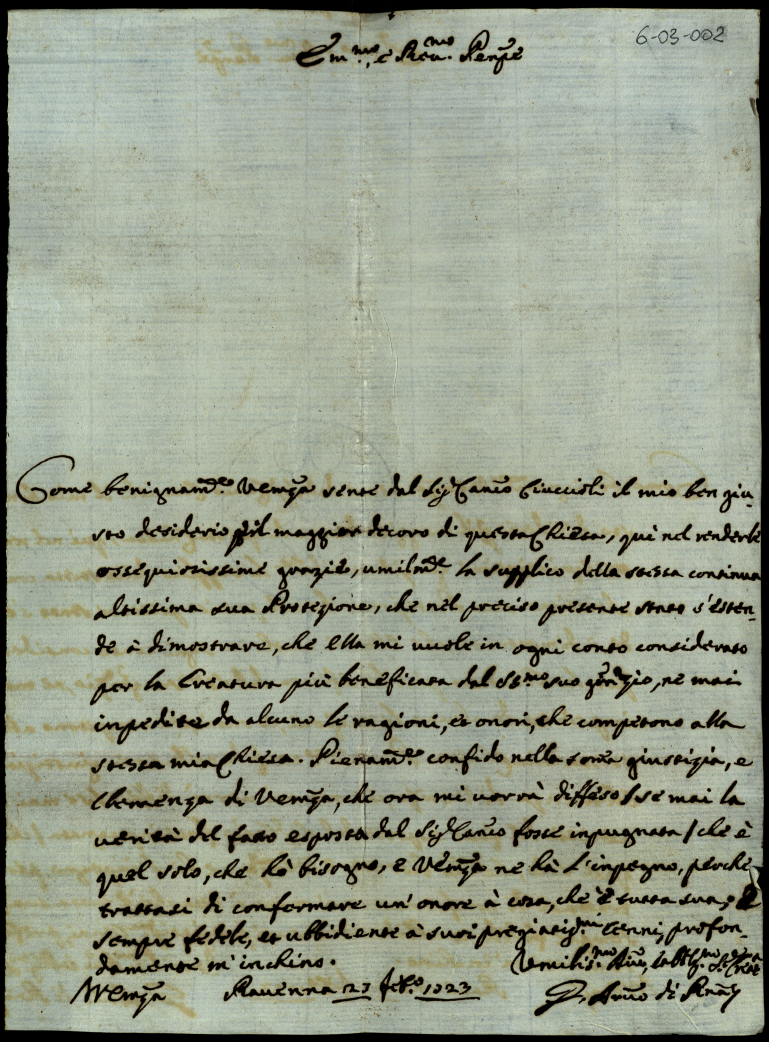 6-03-002
Em.mo, e Rev.mo Prenpe
Come benignam.te VEmza sente dal Sig.r Can.co Ciuccioli il mio ben giu-
sto desiderio p il maggior decoro di questa Chiesa, qui nel renderle
ossequiosissime grazie, umilm.te la supplico della stessa continua
altissima sua Protezione, che nel preciso presente stato s'esten-
de à dimostrare, che ella mi vuole in ogni conto considerato
per la Creatura più beneficata dal suo, ne mai
inpedite da alcuno le ragioni, et onori, che competono alla
stessa mia Chiesa. Pienam.te confido nella somma giustizia, e
Clemenza di VEmza, che ora mi vorrà diffeso / se mai la
verità del fatto esposta dal Sig.r Can.co fosse inpugnata / che è
quel solo, che hò bisogno, e VEmza ne hà l'inpegno, perche
trattasi di conformare un'onore à cosa, che è tutta sua; e
sempre fedele, et ubbidiente à suoi preziatis.mi Cenni, profon-
damente m'inchino.
VEmza Ravenna 27 feb.o 1723